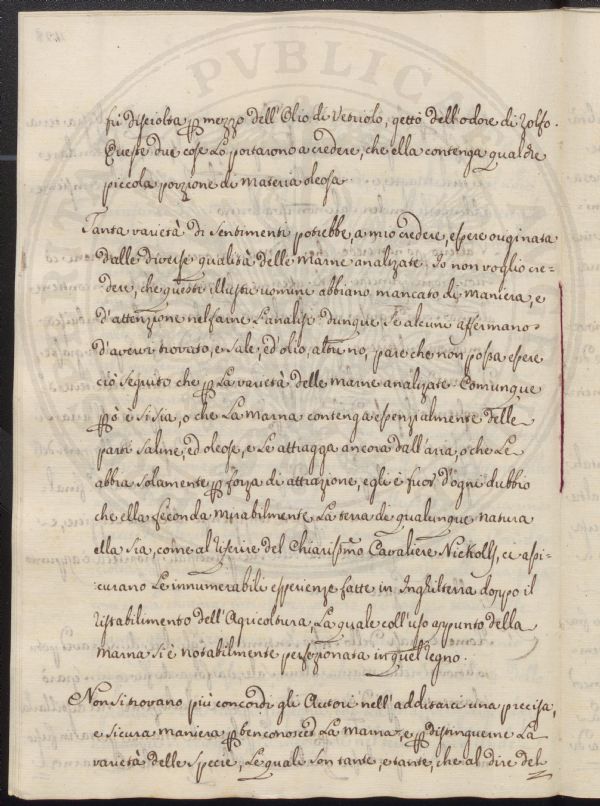 PVBLICA
fù disciolta p mezzo dell'Olio di Vetriolo, gettò dell'odore di Zolfo.
Queste due cose Lo portarono a credere, che ella contenga qualche
piccola porzione di materia oleosa.
Tanta varietà di sentimenti potrebbe, a mio credere, essere originata
dalle diverse qualità delle Marne analizate. Io non voglio cre-
dere, che queste illustri uomini abbiano mancato di maniera, e
d'attenzione nel farne L'analisi. Dunque Se alcuni affermano
d'avervi trovato, e Sale, ed'olio, altri no, pare che non possa essere
ciò Seguito che p La varietà delle marne analizate. Comunque
pò è si sia, o che La Marna contenga essenzialmente delle
parti Saline, ed oleose, e Le attragga ancora dall'aria, o che Le
abbia solamente p forza di attrazione, egli è fuor d'ogni dubbio
che ella feconda mirabilmente La terra di qualunque natura
ella Sia, come al riferire del Chiarissmo Cavaliere Nickolls, ci assi-
curano Le innumerabili esperienze fatte in Inghilterra doppo il
ristabilimento dell'Agricoltura, La quale coll'uso appunto della
Marna si è notabilmente perfezionata in quel regno.
Non si trovano più concordi gli Autori nell'additarci una precisa,
e sicura maniera p ben conoscer La Marna, e p distinguerne La
varietà delle specie, Le quali son tante, e tante, che al dire del